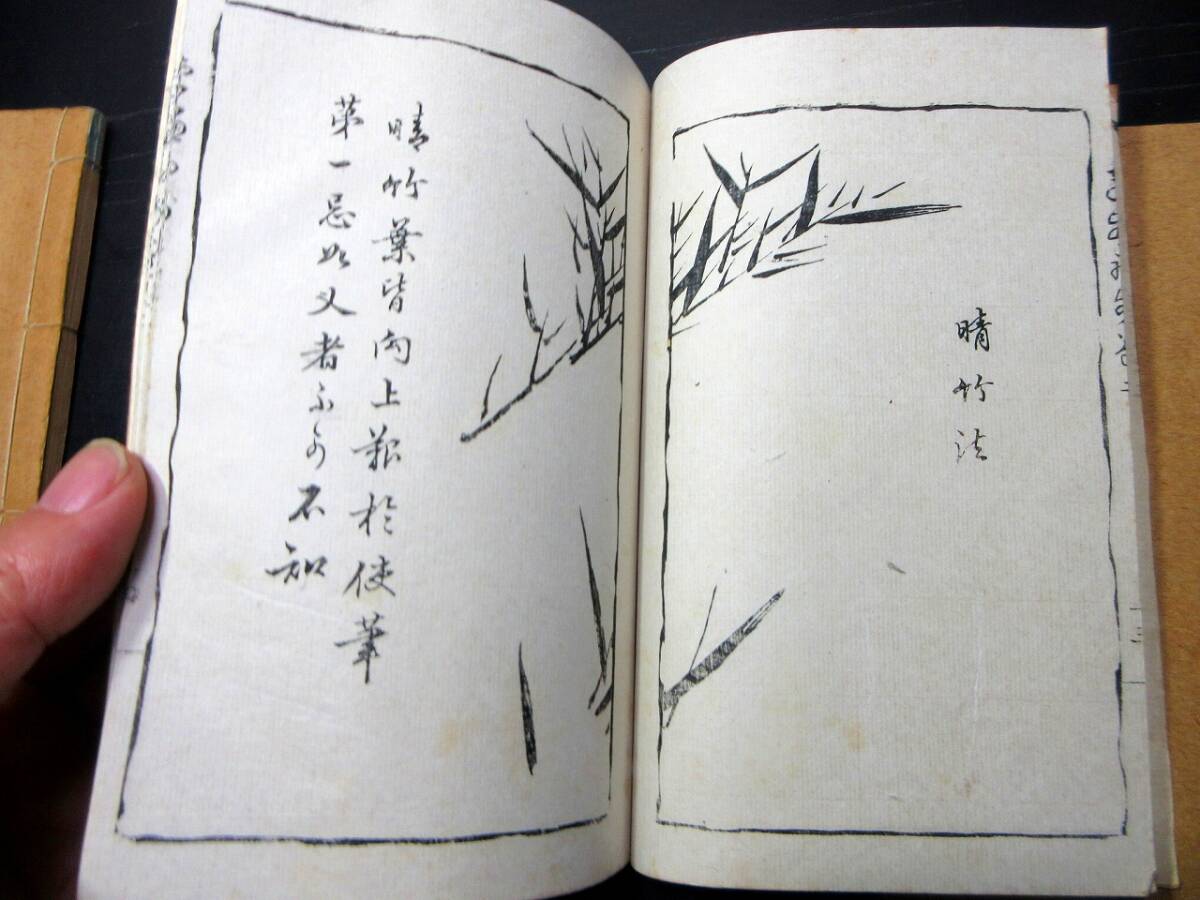 晴竹法
晴竹葉皆向上於使筆
第一忌如叉者不可不知
三